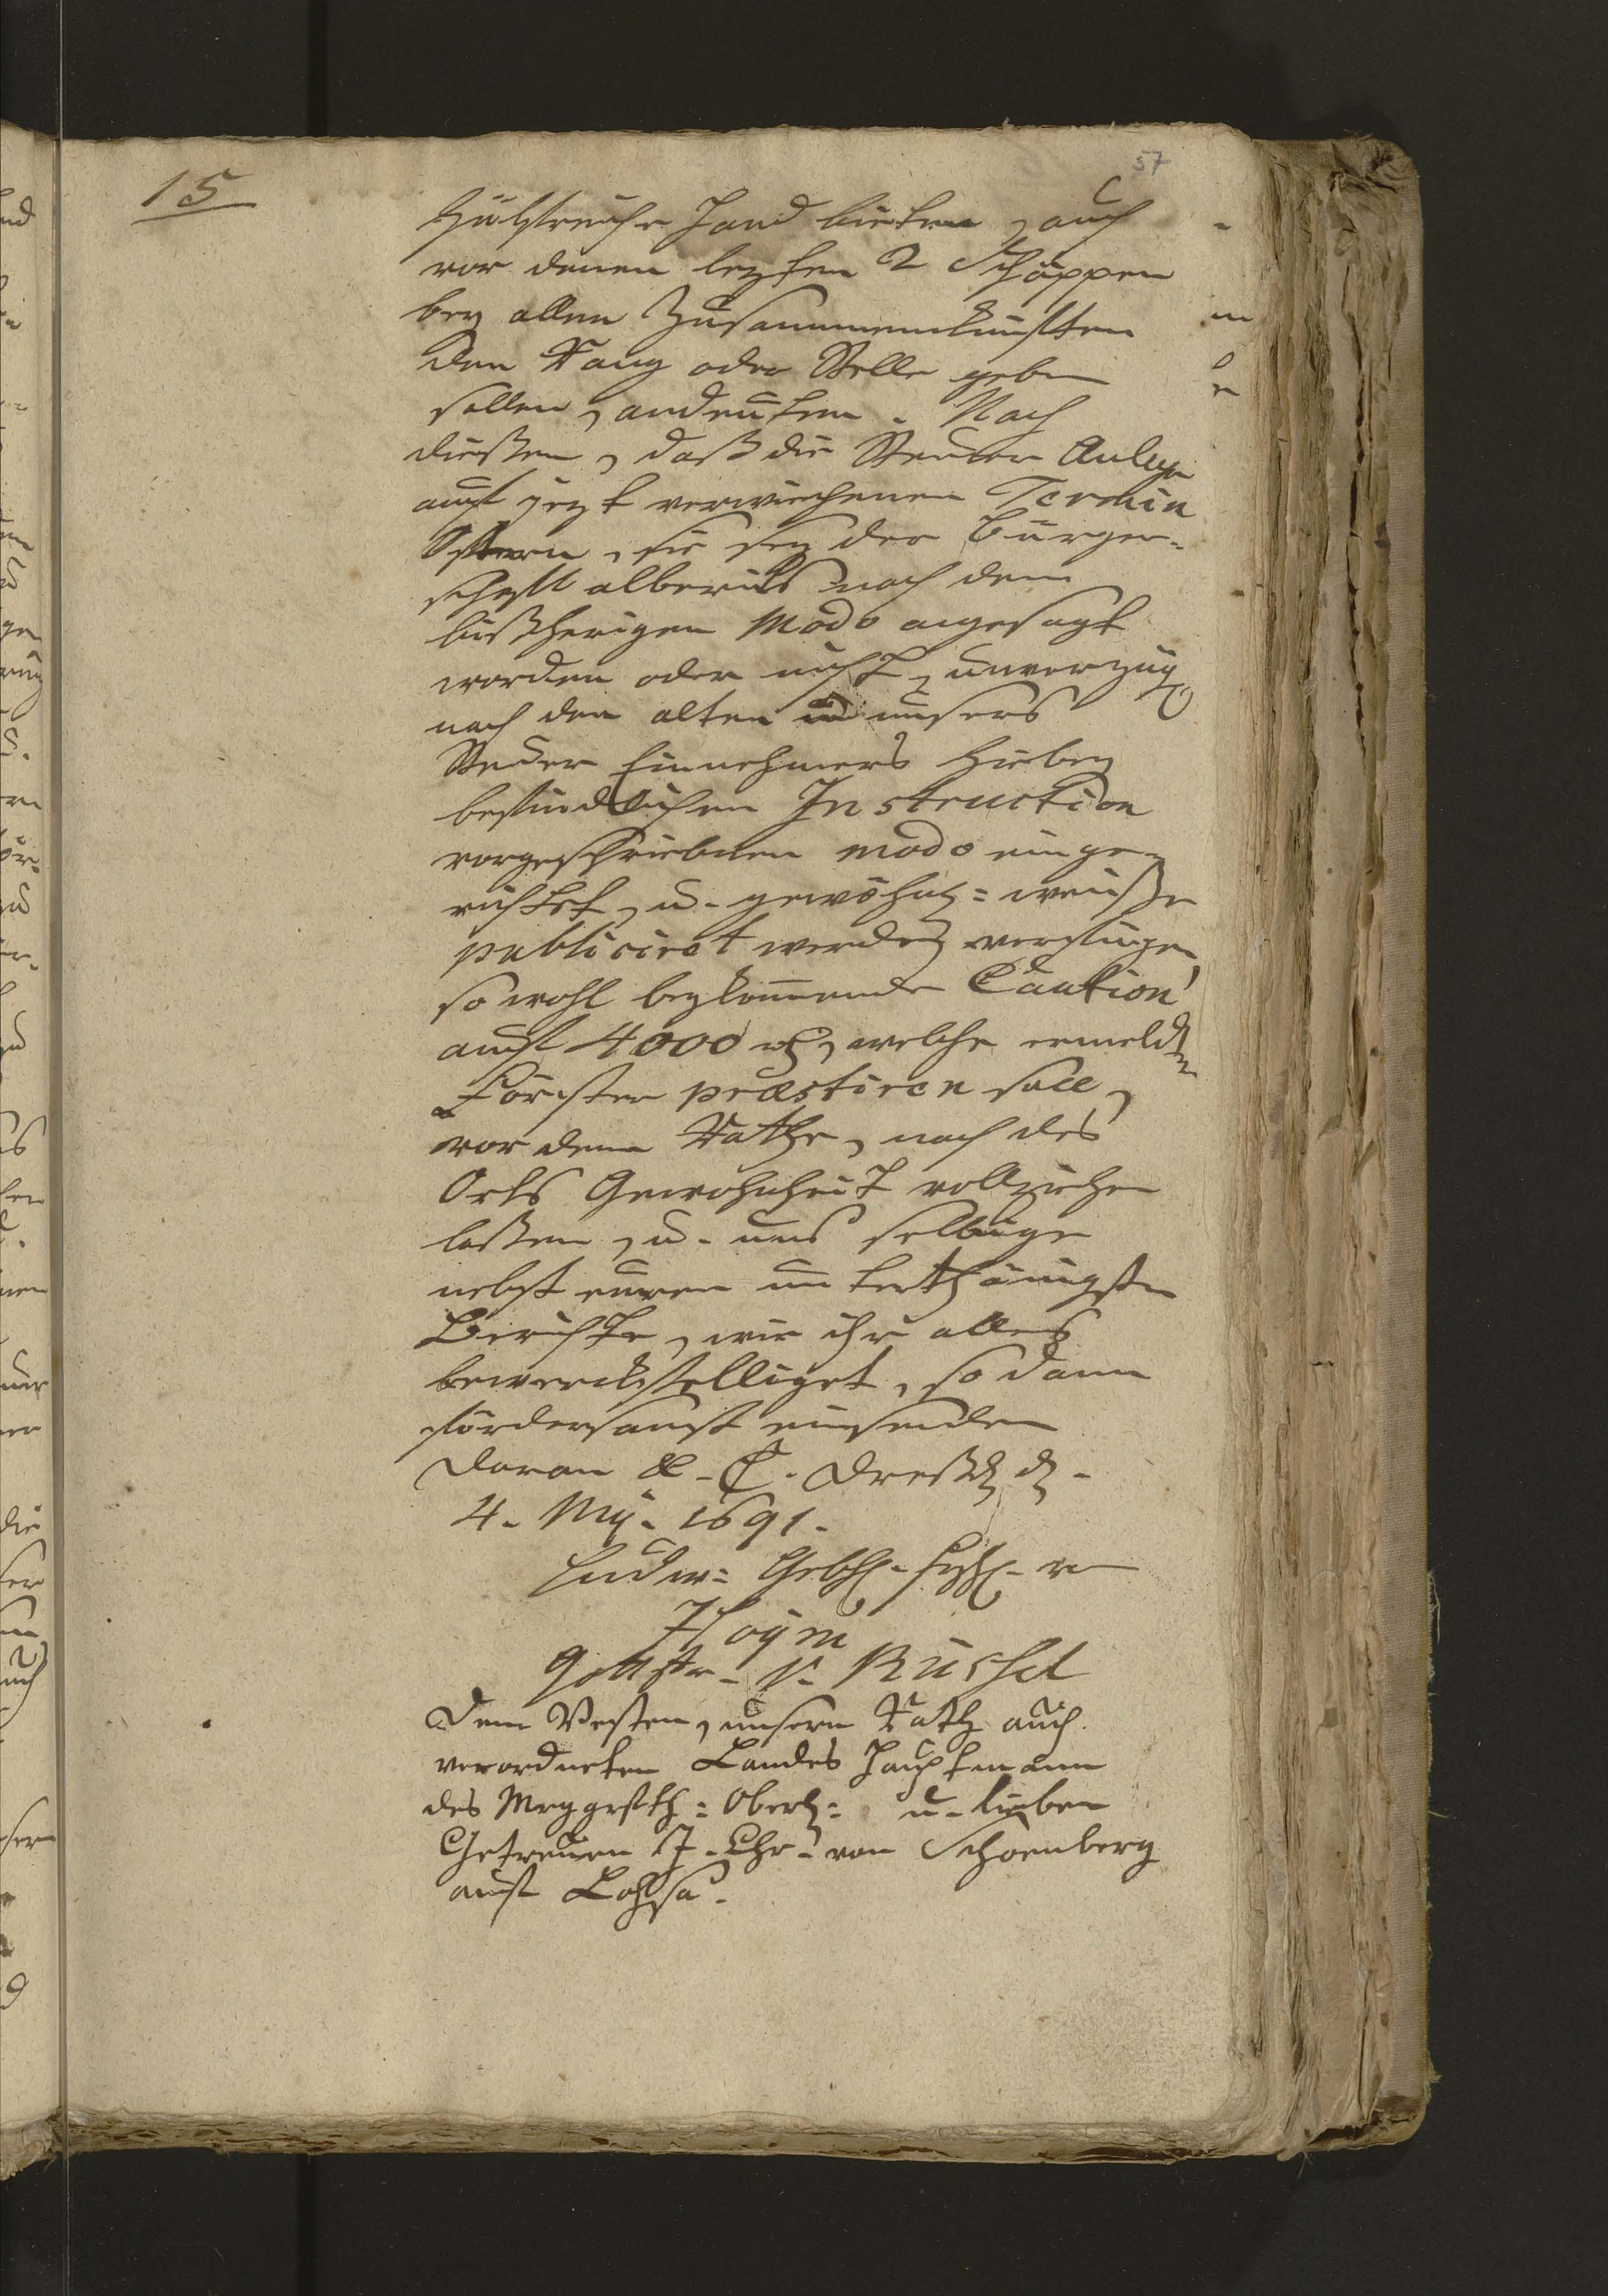 57
15
Hülfreiche Hand bieten, auch
vor denen lezten 2 Schöppen
bey allen Zusammenkünften
den Rang oder Stelle geben
sollen, andeuten. Nach
dießen, daß die Steuer Anlage
auf jezt verwichenen Termin
Ostern, sie sey der Bürger-
schafft albereits nach dem
bißherigen Modo angesagt
worden oder nicht, unverzügl
nach den alten in unsers
Steuer Einnehmers hiebey
befindlichen Instruction
vorgeschriebnen modo einge-
richtet, u. gewöhnl= weiße
publiciret werden verfügen,
so wohl bezkommende Caution
auf 4000 rthl, welche ermeldter
Förster præstiren soll,
vor dem Rathe, nach des
Orts Gewohnheit vollziehen
laßen, u. uns selbige
nebst euren unterthänigsten
Berichte, wie ihr alles
bewerckstelliget, so dann
fördersamst einsenden
Daran &. C. Dreßd. d.
4. May. 1691.
Ludw= Gebh. Frhh. v
Hoym
Gottfr. V. Rüchel
Dem Vesten, unsern Rath auch
verordneten Landes Hauptmann
des Mrggrfth= Oberl= u. lieben
Getreuen H. Chr. von Schoenberg
auf Lohsa.